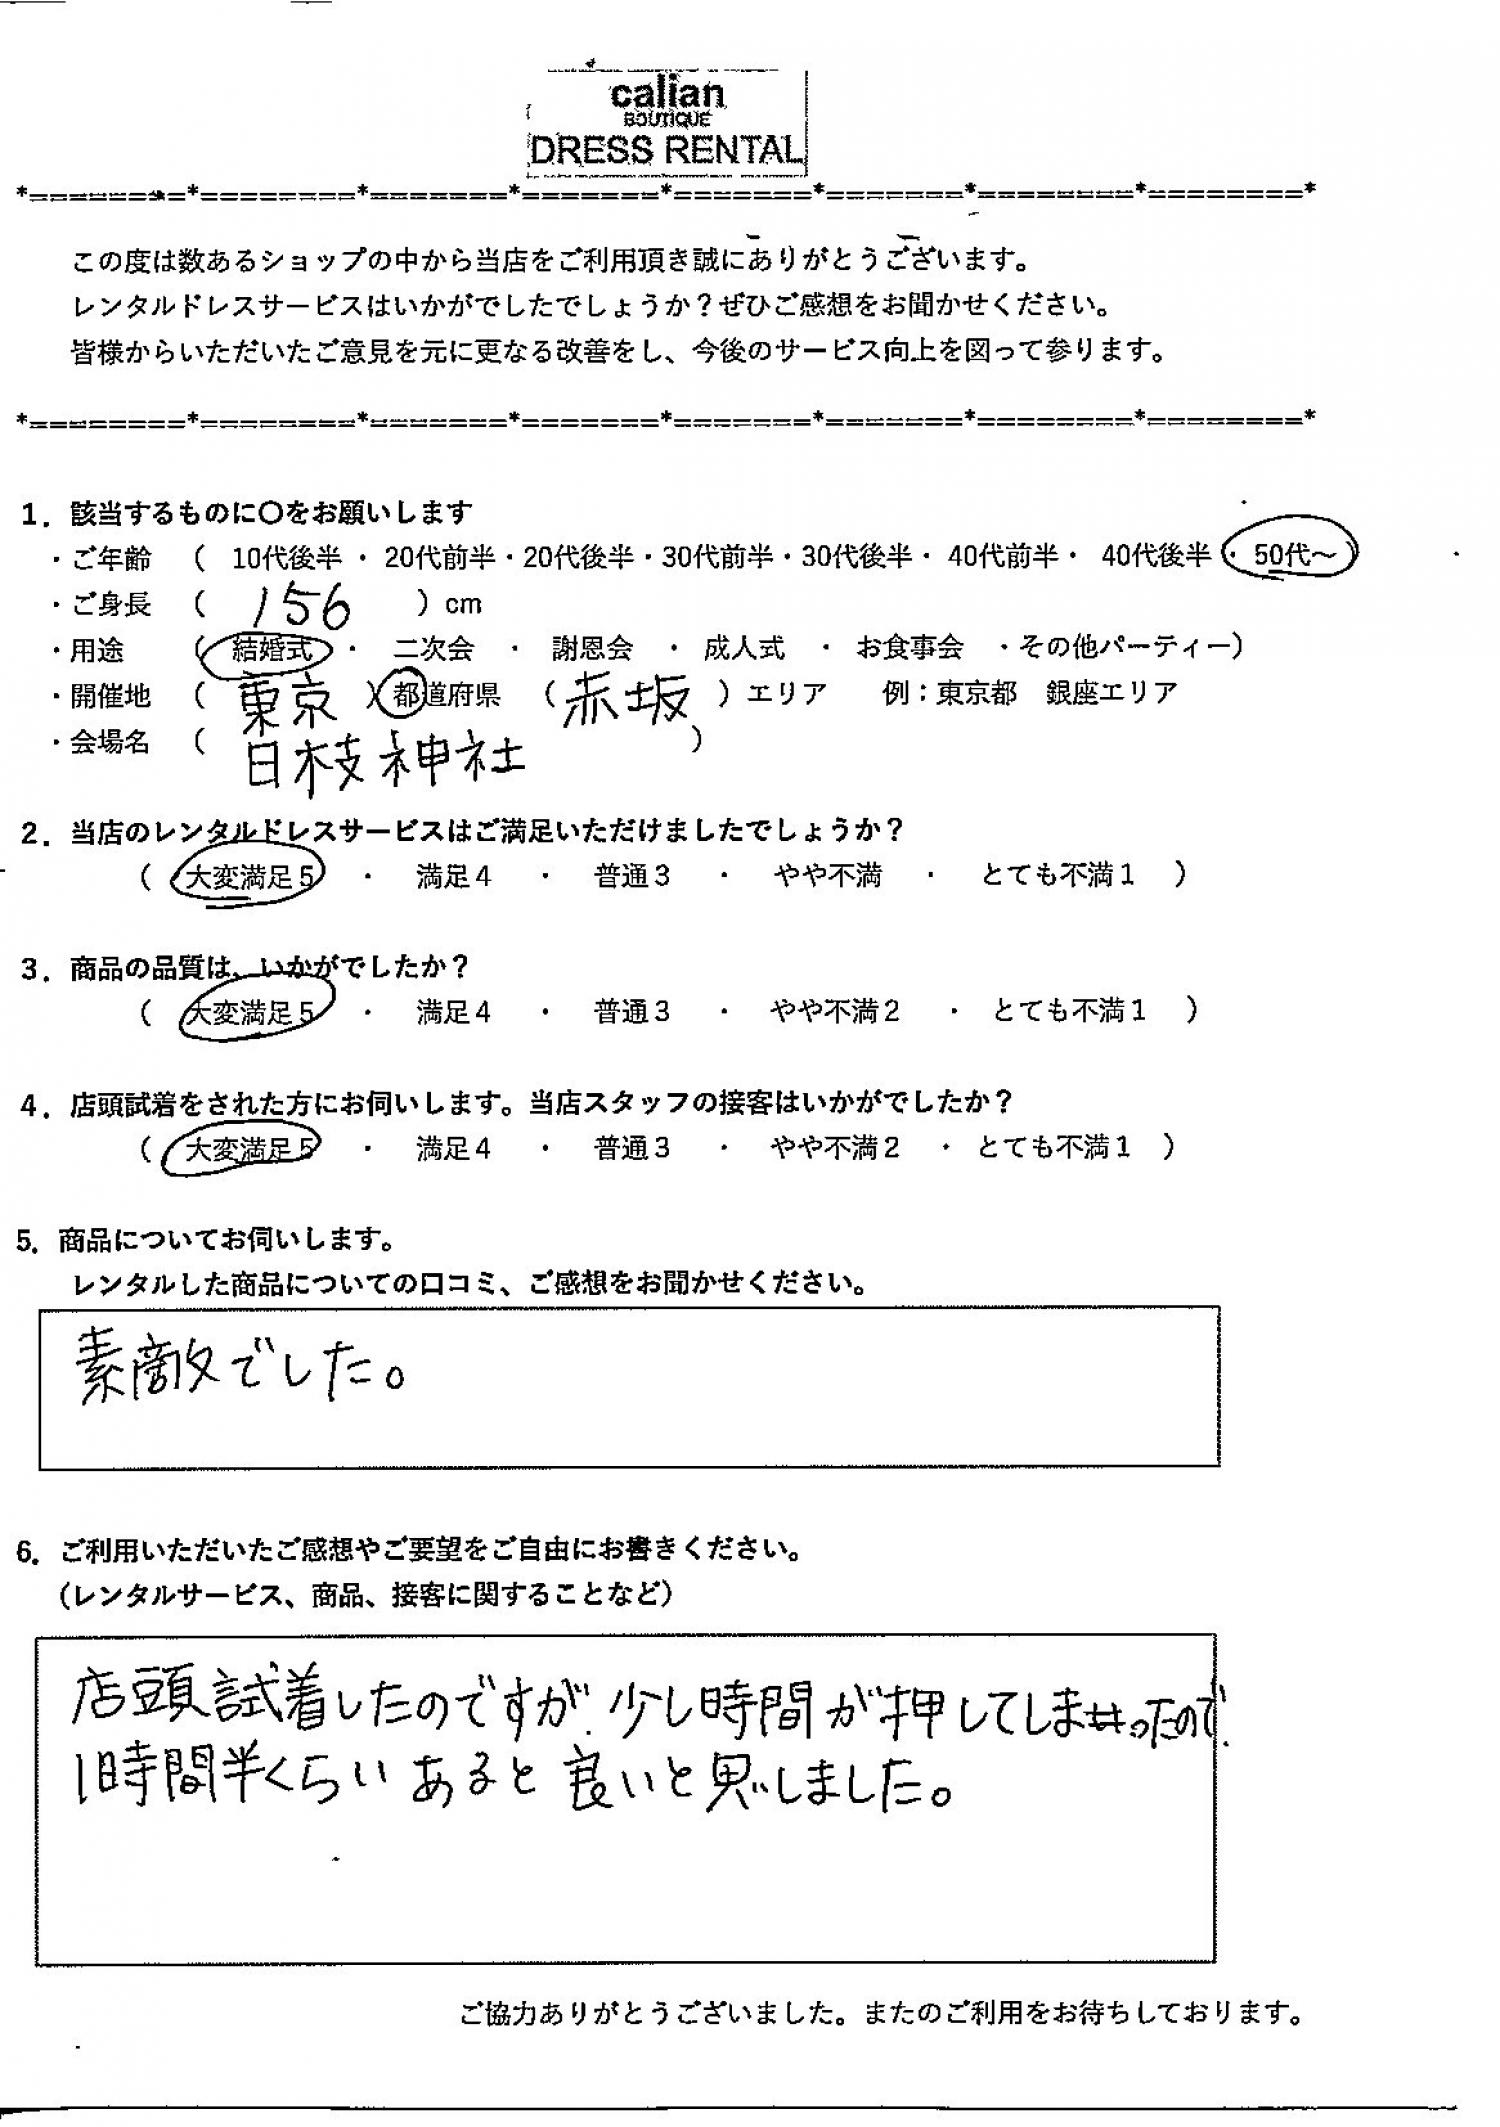 calian
BOUTIQUE
DRESS RENTAL
*========*========*=======*=======*=======*=======*========*========*
この度は数あるショップの中から当店をご利用頂き誠にありがとうございます。
レンタルドレスサービスはいかがでしたでしょうか？ぜひご感想をお聞かせください。
皆様からいただいたご意見を元に更なる改善をし、今後のサービス向上を図って参ります。
*========*========*=======*=======*=======*=======*========*========*
1．該当するものに〇をお願いします
・ご年齢 （ 10代後半 ・ 20代前半・20代後半・30代前半・30代後半・ 40代前半・ 40代後半 ・ 50代～ ）
・ご身長 （ 156 ）cm
・用途 （ 結婚式 ・ 二次会 ・ 謝恩会 ・ 成人式 ・ お食事会 ・その他パーティー）
・開催地 （ 東京 ）都道府県 （ 赤坂 ）エリア 例：東京都 銀座エリア
・会場名 （ 日枝神社 ）
2．当店のレンタルドレスサービスはご満足いただけましたでしょうか？
（ 大変満足５ ・ 満足４ ・ 普通３ ・ やや不満 ・ とても不満１ ）
3．商品の品質は、いかがでしたか？
（ 大変満足５ ・ 満足４ ・ 普通３ ・ やや不満２ ・ とても不満１ ）
4．店頭試着をされた方にお伺いします。当店スタッフの接客はいかがでしたか？
（ 大変満足５ ・ 満足４ ・ 普通３ ・ やや不満２ ・ とても不満１ ）
5．商品についてお伺いします。
レンタルした商品についての口コミ、ご感想をお聞かせください。
素敵でした。
6．ご利用いただいたご感想やご要望をご自由にお書きください。
（レンタルサービス、商品、接客に関することなど）
店頭試着したのですが、少し時間が押してしまったので、
1時間半くらいあると良いと思いしました。
ご協力ありがとうございました。またのご利用をお待ちしております。